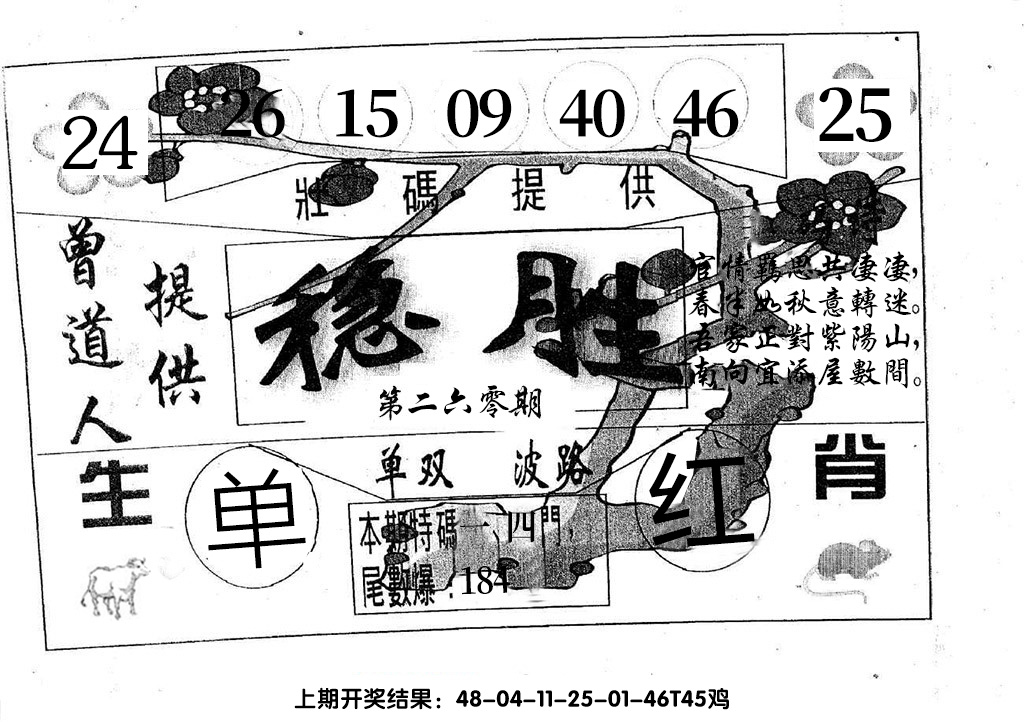 24 26 15 09 40 46 25
壯碼提供
曾道人
提供
稳胜
第二六零期
官情羁思共凄凄，
春半如秋意轉迷。
吾家正對紫陽山，
南向宜添屋數間。
单双 波路
生肖
单
红
本期特碼一、四門，
尾數爆：184
上期开奖结果：48-04-11-25-01-46T45鸡